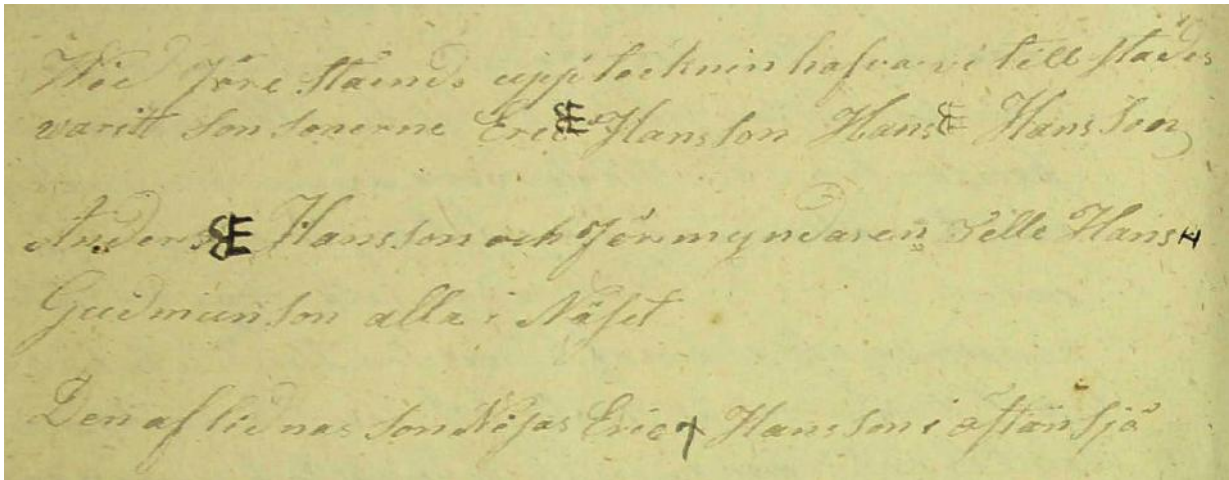 Wid före ståends upptecknin hafva vi till städes
varitt son sonerne Eric Hansson Hans Hansson
Anders Hansson och förmyndaren Pelle Hans
Gudmunson alla i Näset
Den aflidnas son Nisas Eric Hansson i östansjö